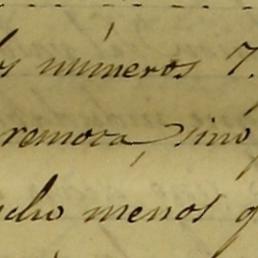 os números 7.
remova, sino
ucho menos q